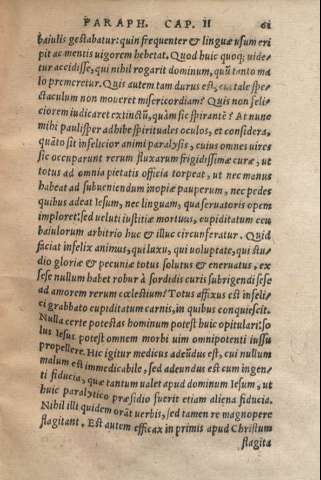 PARAPH. CAP. II 61
baiulis gestabatur: quin frequenter & linguæ usum eri
pit ac mentis uigorem hebetat. Quod huic quoq; uide
tur accidisse, qui nihil rogarit dominum, quũ tanto ma
lo premeretur. Quis autem tam durus est, cui tale spe
ctaculum non moueret misericordiam? Quis non feli⸗
ciorem iudicaret extinctũ, quàm sic spirantẽ? At nunc
mihi paulisper adhibe spirituales oculos, et considera,
quãto sit infelicior animi paralysis, cuius omnes uires
sic occuparunt rerum fluxarum frigidissimæ curæ, ut
totus ad omnia pietatis officia torpeat, ut nec manus
habeat ad subueniendum inopiæ pauperum, nec pedes
quibus adeat Iesum, nec linguam, qua seruatoris opem
imploret: sed ueluti iustitiæ mortuus, cupiditatum ceu
baiulorum arbitrio huc & illuc circunferatur. Quid
faciat infelix animus, qui luxu, qui uoluptate, qui stu⸗
dio gloriæ & pecuniæ totus solutus & eneruatus, ex
sese nullum habet robur à sordidis curis subrigendi sese
ad amorem rerum cœlestium? Totus affixus est infeli⸗
ci grabbato cupiditatum carnis, in quibus conquiescit.
Nulla certe potestas hominum potest huic opitulari: so
lus Iesus potest omnem morbi uim omnipotenti iussu
propellere. Hic igitur medicus adeũdus est, cui nullum
malum est immedicabile, sed adeundus est cum ingen⸗
ti fiducia, quæ tantum ualet apud dominum Iesum, ut
huic paralytico præsidio fuerit etiam aliena fiducia.
Nihil illi quidem orãt uerbis, sed tamen re magnopere
flagitant. Est autem efficax in primis apud Christum
flagita